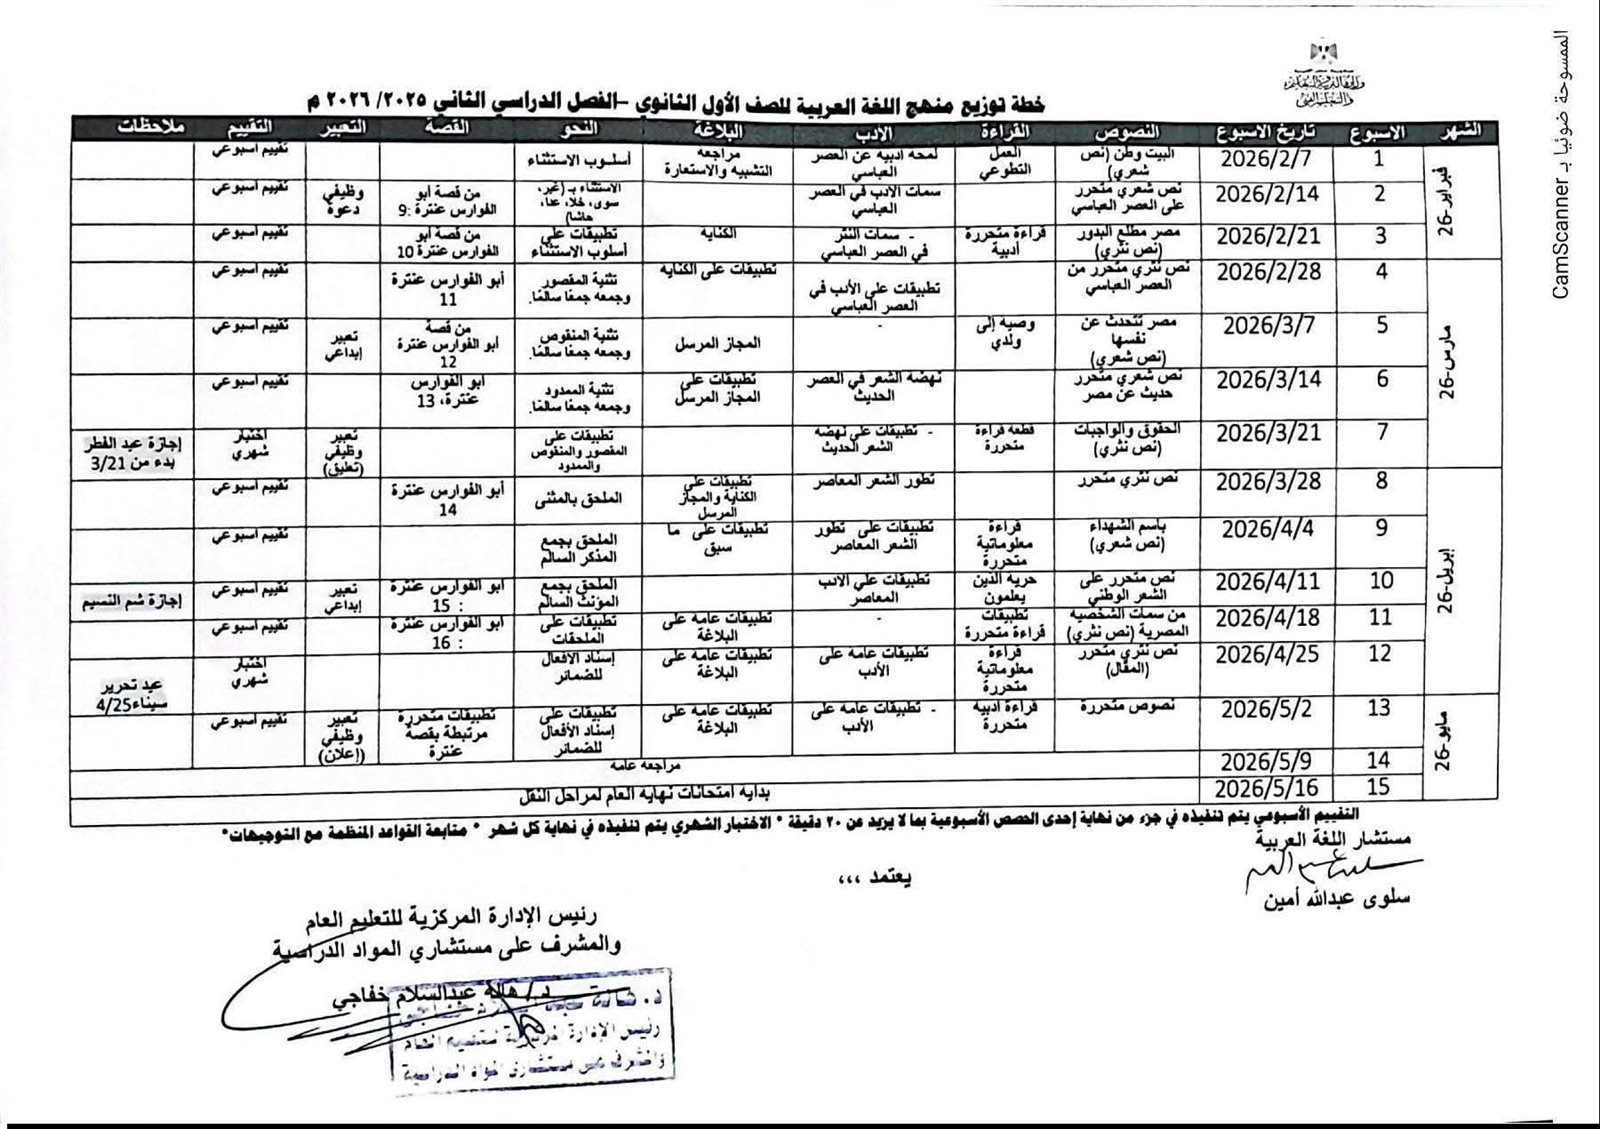 وزارة التربية والتعليم
والتعليم الفني
خطة توزيع منهج اللغة العربية للصف الأول الثانوي –الفصل الدراسي الثاني ٢٠٢٥/ ٢٠٢٦ م
الشهر الاسبوع تاريخ الاسبوع النصوص القراءة الأدب البلاغة النحو القصة التعبير التقييم ملاحظات
فبراير-26
1 2026/2/7 البيت وطن (نص شعري) العمل التطوعي لمحه أدبيه عن العصر العباسي مراجعه التشبيه والاستعارة أسلوب الاستثناء تقييم أسبوعي
2 2026/2/14 نص شعري متحرر على العصر العباسي سمات الأدب في العصر العباسي الاستثناء بـ (غير، سوى، خلا، عدا، حاشا) من قصة أبو الفوارس عنترة :9 وظيفي دعوة تقييم أسبوعي
3 2026/2/21 مصر مطلع البدور (نص نثري) قراءة متحررة أدبية - سمات النثر في العصر العباسي الكنايه تطبيقات على أسلوب الاستثناء من قصة أبو الفوارس عنترة 10 تقييم أسبوعي
مارس-26
4 2026/2/28 نص نثري متحرر من العصر العباسي تطبيقات على الأدب في العصر العباسي تطبيقات على الكنايه تثنية المقصور وجمعه جمعًا سالمًا. أبو الفوارس عنترة 11 تقييم أسبوعي
5 2026/3/7 مصر تتحدث عن نفسها (نص شعري) وصيه إلى ولدي - المجاز المرسل تثنية المنقوص وجمعه جمعًا سالمًا. من قصة أبو الفوارس عنترة 12 تعبير إبداعي تقييم أسبوعي
6 2026/3/14 نص شعري متحرر حديث عن مصر نهضة الشعر في العصر الحديث تطبيقات على المجاز المرسل تثنية الممدود وجمعه جمعًا سالمًا. أبو الفوارس عنترة، 13 تقييم أسبوعي
7 2026/3/21 الحقوق والواجبات (نص نثري) قطعه قراءة متحررة - تطبيقات على نهضه الشعر الحديث تطبيقات على المقصور والمنقوص والممدود تعبير وظيفي (تعليق) اختبار شهري إجازة عيد الفطر بدء من 3/21
إبريل-26
8 2026/3/28 نص نثري متحرر تطور الشعر المعاصر تطبيقات على الكناية والمجاز المرسل الملحق بالمثنى أبو الفوارس عنترة 14 تقييم أسبوعي
9 2026/4/4 باسم الشهداء (نص شعري) قراءة معلوماتية متحررة تطبيقات على تطور الشعر المعاصر تطبيقات على ما سبق الملحق بجمع المذكر السالم تقييم أسبوعي
10 2026/4/11 نص متحرر على الشعر الوطني حرية الذين يعلمون تطبيقات على الأدب المعاصر الملحق بجمع المؤنث السالم أبو الفوارس عنترة : 15 تعبير إبداعي تقييم أسبوعي إجازة شم النسيم
11 2026/4/18 من سمات الشخصيه المصرية (نص نثري) تطبيقات قراءة متحررة - تطبيقات عامه على البلاغة تطبيقات على الملحقات أبو الفوارس عنترة : 16 تقييم أسبوعي
12 2026/4/25 نص نثري متحرر (المقال) قراءة معلوماتية متحررة تطبيقات عامه على الأدب تطبيقات عامه على البلاغة إسناد الأفعال للضمائر اختبار شهري عيد تحرير سيناء4/25
مايو-26
13 2026/5/2 نصوص متحررة قراءة أدبية متحررة - تطبيقات عامه على الأدب تطبيقات عامه على البلاغة تطبيقات على إسناد الأفعال للضمائر تطبيقات متحررة مرتبطة بقصة عنترة تعبير وظيفي (إعلان) تقييم أسبوعي
14 2026/5/9 مراجعه عامه
15 2026/5/16 بداية امتحانات نهاية العام لمراحل النقل
التقييم الأسبوعي يتم تنفيذه في جزء من نهاية إحدى الحصص الأسبوعية بما لا يزيد عن ٢٠ دقيقة * الاختبار الشهري يتم تنفيذه في نهاية كل شهر * متابعة القواعد المنظمة مع التوجيهات*
مستشار اللغة العربية
سلوى عبدالله أمين
يعتمد ،،،
رئيس الإدارة المركزية للتعليم العام
والمشرف على مستشاري المواد الدراسية
د/ هالة عبدالسلام خفاجي
د. هالة عبد السلام خفاجي
رئيس الإدارة المركزية للتعليم العام
والمشرف على مستشاري المواد الدراسية
الممسوحة ضوئيا بـ CamScanner